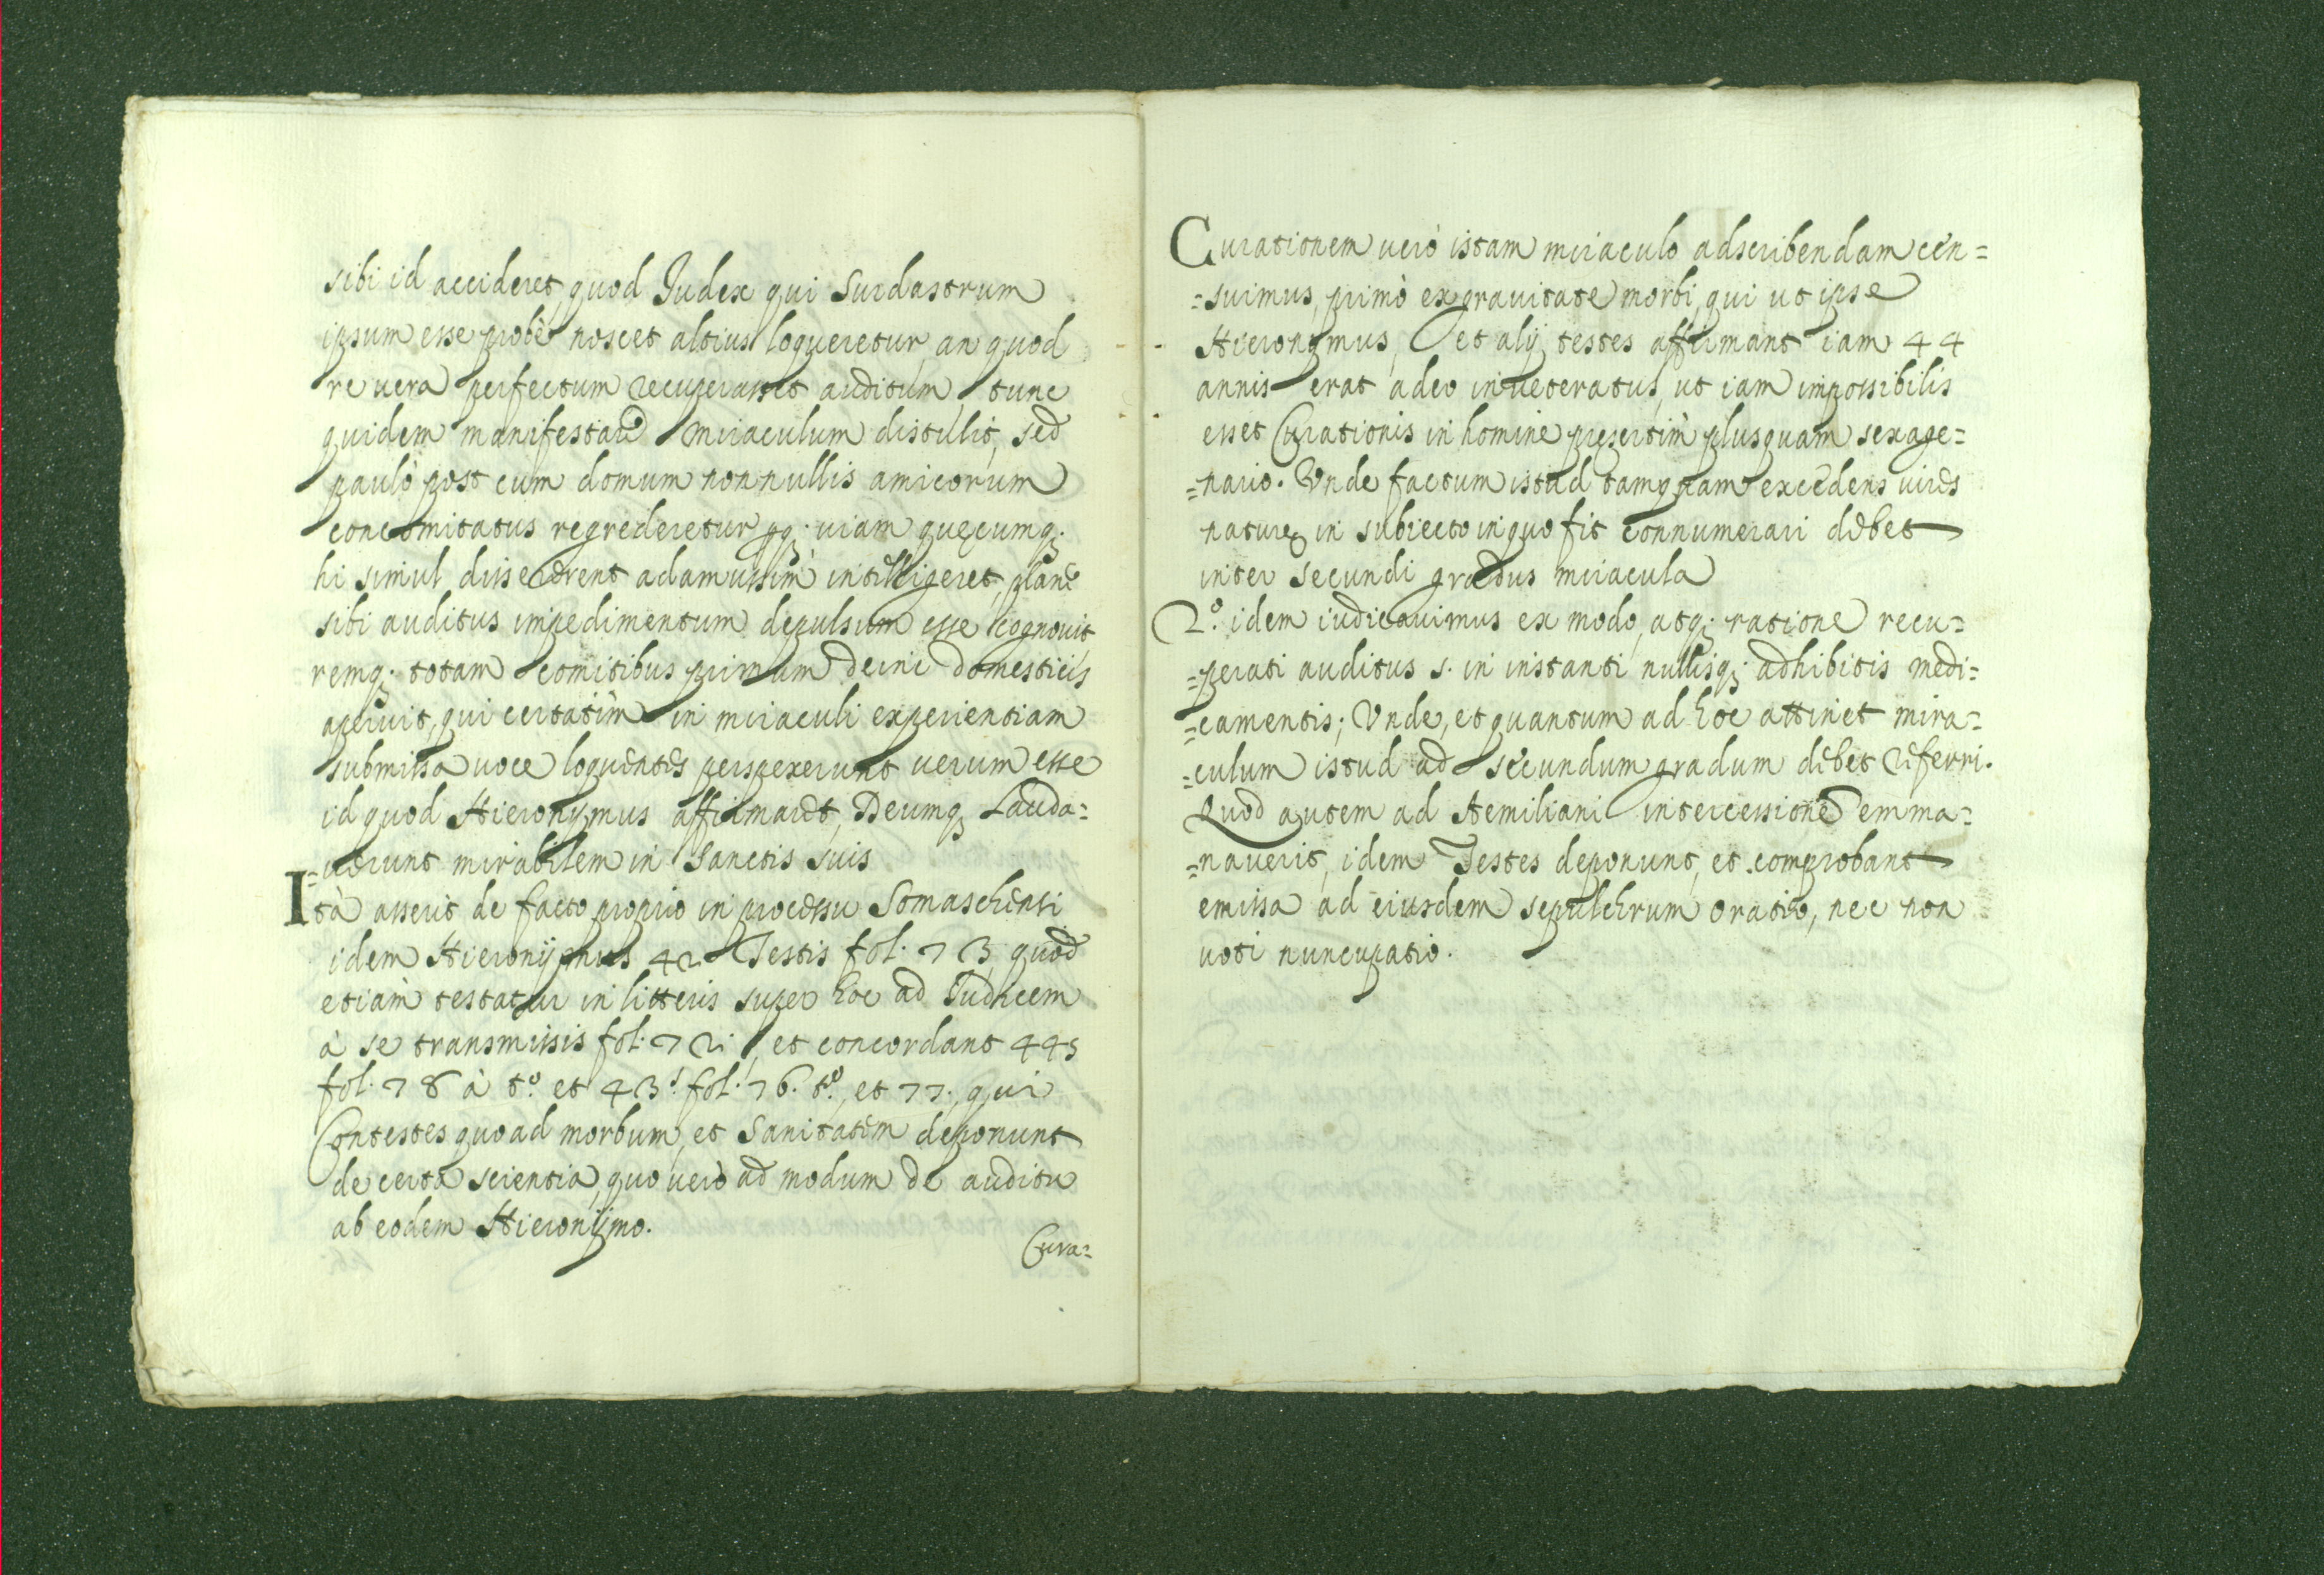 sibi id accideret, quod Iudex qui Surdastrum
ipsum esse probè noscet altius loqueretur, an quod
re uera perfectum recuperasset auditum tunc
quidem manifestare miraculum distulit, sed
paulò post cum domum nonnullis amicorum
concomitatus regrederetur uiam quęcumq;
hi simul dissererent adamussim intelligeret, planè
sibi auditus impedimentum depulsum esse cognouit
remq; totam comitibus primum deinc domesticis
aperuit, qui certatim in miraculi experientiam
submissa uoce loquentes perspexerunt uerum esse
id quod Hieronymus affirmaret, Deumq; Lauda=
=uerunt mirabilem in Sanctis suis
Ità asserit de facto proprio in processu Somaschensi
idem Hieronÿmus 42 Testis fol. 73 quod
etiam testatur in litteris super hoc ad Iudicem
à se transmissis fol. 72. et concordant 445
fol. 78 à tº. et 43.ˢ fol. 76. tº., et 77., qui
Contestes quoad morbum, et Sanitatem deponunt
de certa scientia, quo uerò ad modum de auditu
ab eodem Hieronÿmo.
Cura=
Curationem uerò istam miraculo adscribendam cen=
=suimus, primò ex grauitate morbi, qui ut ipse
Hieronymus, et alij testes affirmant iam 44
annis erat adeo inueteratus, ut iam impossibilis
esset Curationis in homine presertim plusquam sexage=
=nario. Vnde factum istud tamquam excedens uires
naturę in subiecto in quo fit connumerari debet
inter secundi gradus miracula
2.º idem iudicauimus ex modo, atq; ratione recu=
=perati auditus s. in instanti nullisq; adhibitis medi=
=camentis; Vnde, et quantum ad hoc attinet mira=
=culum istud ad secundum gradum debet referri.
Quod autem ad Aemiliani intercessione emma=
=nauerit, idem Testes deponunt, et comprobant
emissa ad eiusdem sepulchrum oratio, nec non
uoti nuncupatio.